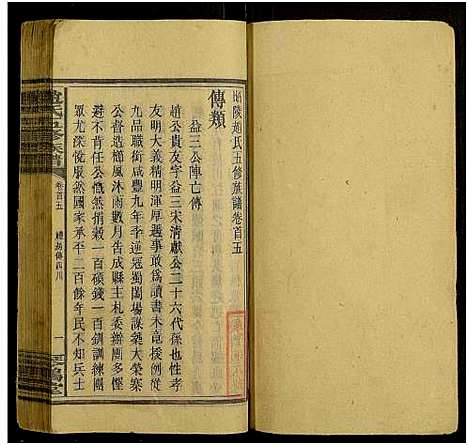 邵陵趙氏五修族譜卷首五
傳類
益三公陣亡傳
趙公貴友字益三宋清獻公二十六代孫也性孝
友明大義精明渾厚遇事敢為讀書未竟援例從
九品職銜咸豐九年季逆冠蜀闖場謀藥大榮寨
公督造櫛風沐雨數月告成縣主札委辦團多慳
避不肯任公慨然捐穀一百碩錢一百釧訓練團
眾尤深悅服然國家承平二百餘年民不知兵士
趙氏五修族譜
卷首五
一